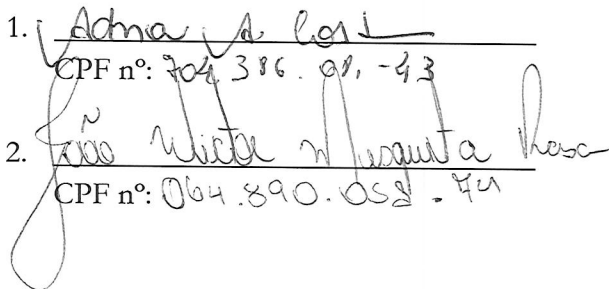 1. Adna A. Cost
CPF nº: 704.386.01.-43
2. João Victor Mesquita Rosa
CPF nº: 064.890.058.-74